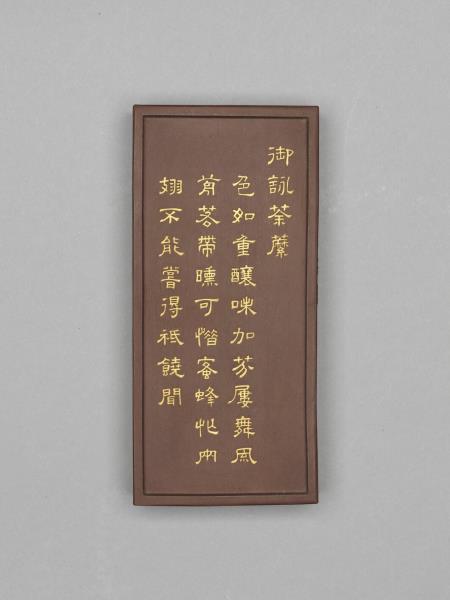 御詠荼蘼
色如重釀味加芬屢舞風
前若帶醺可惜蜜蜂忙兩
翅不能嘗得祇饒聞